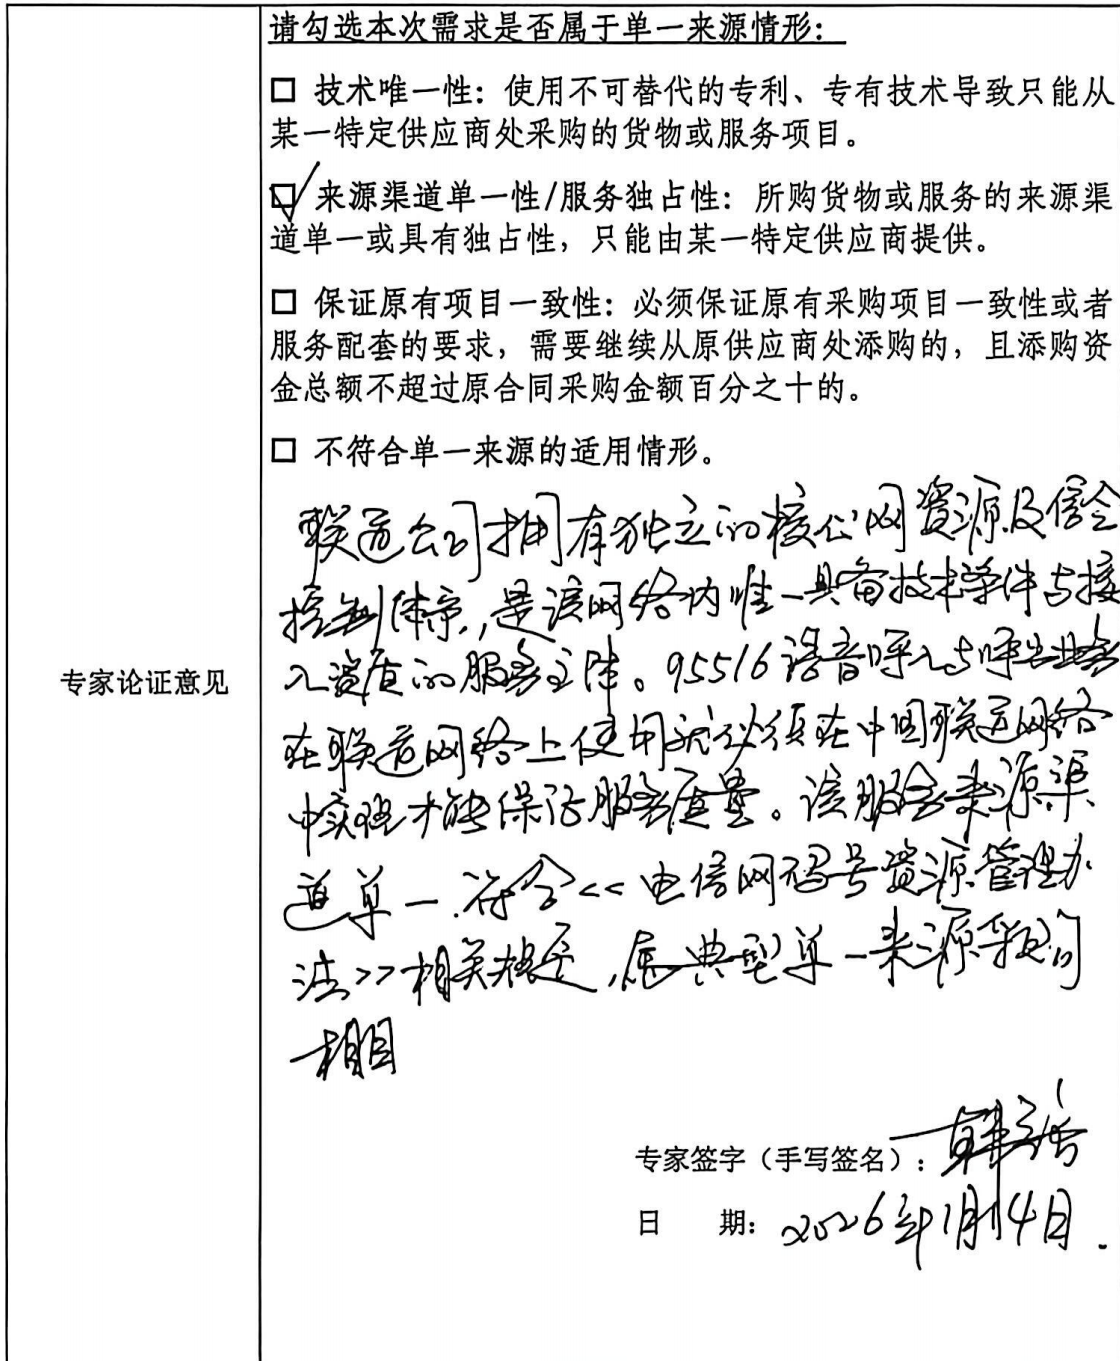 请勾选本次需求是否属于单一来源情形：
□ 技术唯一性：使用不可替代的专利、专有技术导致只能从
某一特定供应商处采购的货物或服务项目。
☑ 来源渠道单一性/服务独占性：所购货物或服务的来源渠
道单一或具有独占性，只能由某一特定供应商提供。
□ 保证原有项目一致性：必须保证原有采购项目一致性或者
服务配套的要求，需要继续从原供应商处添购的，且添购资
金总额不超过原合同采购金额百分之十的。
□ 不符合单一来源的适用情形。
专家论证意见
联通公司拥有独立的核心网资源及信令
控制体系，是该网络内唯一具备技术条件与接
入资质的服务主体。95516语音呼入与呼出业务
在联通网络上使用就必须在中国联通网络
中实现才能保证服务质量。该服务来源渠
道单一．符合<<电信网码号资源管理办
法>>相关规定，属典型单一来源采购的
项目
专家签字（手写签名）：韩
日 期：2026年1月14日.